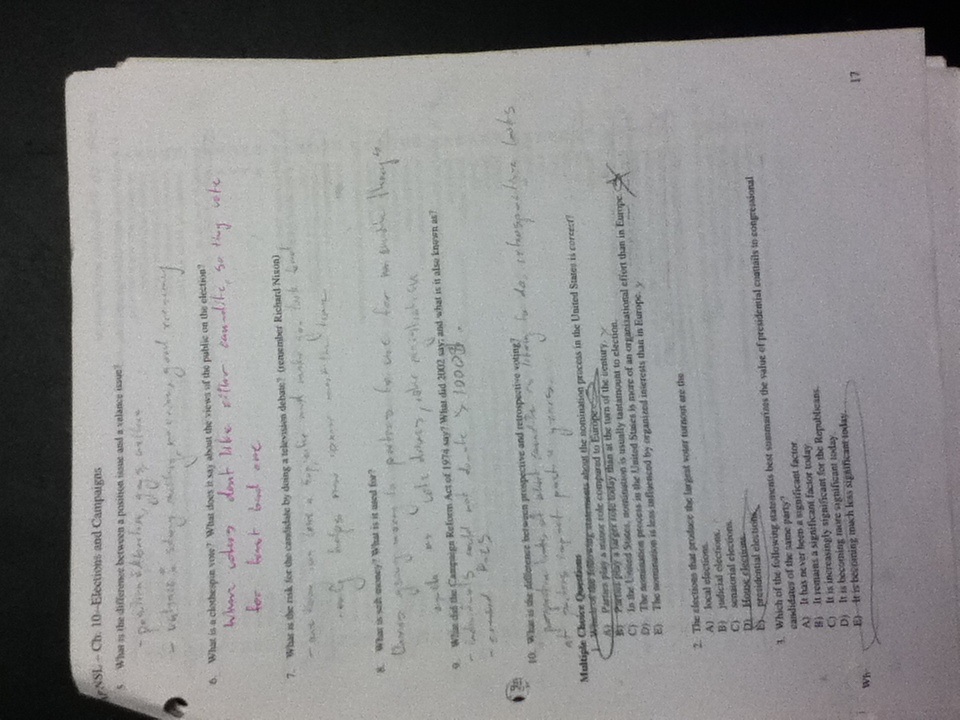 NSL – Ch. 10--Elections and Campaigns
5. What is the difference between a position issue and a valance issue?
- position: abortion, gays, welfare
- valance: strong military, good economy
6. What is a clothespin vote? What does it say about the views of the public on the election?
When voters dont like either candidite, so they vote
for least bad one
7. What is the risk for the candidate by doing a television debate? (remember Richard Nixon)
and make you look bad
- only helps
8. What is soft money? What is it used for?
giving money to parties to use for things
such as vote drives, voter registration
9. What did the Campaign Reform Act of 1974 say? What did 2002 say; and what is it also known as?
- individuals could not donate > 1000$.
- created PACS
10. What is the difference between prospective and retrospective voting?
prospective looks at what candidate is likely to do, retrospective looks
at past years.
Multiple Choice Questions
1. Which of the following statements about the nomination process in the United States is correct?
A) Parties play a minor role compared to Europe.
B) Parties play a larger role today than at the turn of the century.
C) In the United States, nomination is usually tantamount to election.
D) The nomination process in the United States is more of an organizational effort than in Europe.
E) The nomination is less influenced by organized interests than in Europe.
2. The elections that produce the largest voter turnout are the
A) local elections.
B) judicial elections.
C) senatorial elections.
D) House elections.
E) presidential elections.
3. Which of the following statements best summarizes the value of presidential coattails to congressional
candidates of the same party?
A) It has never been a significant factor.
B) It remains a significant factor today.
C) It is increasingly significant for the Republicans.
D) It is becoming more significant today.
E) It is becoming much less significant today.
Wh
17